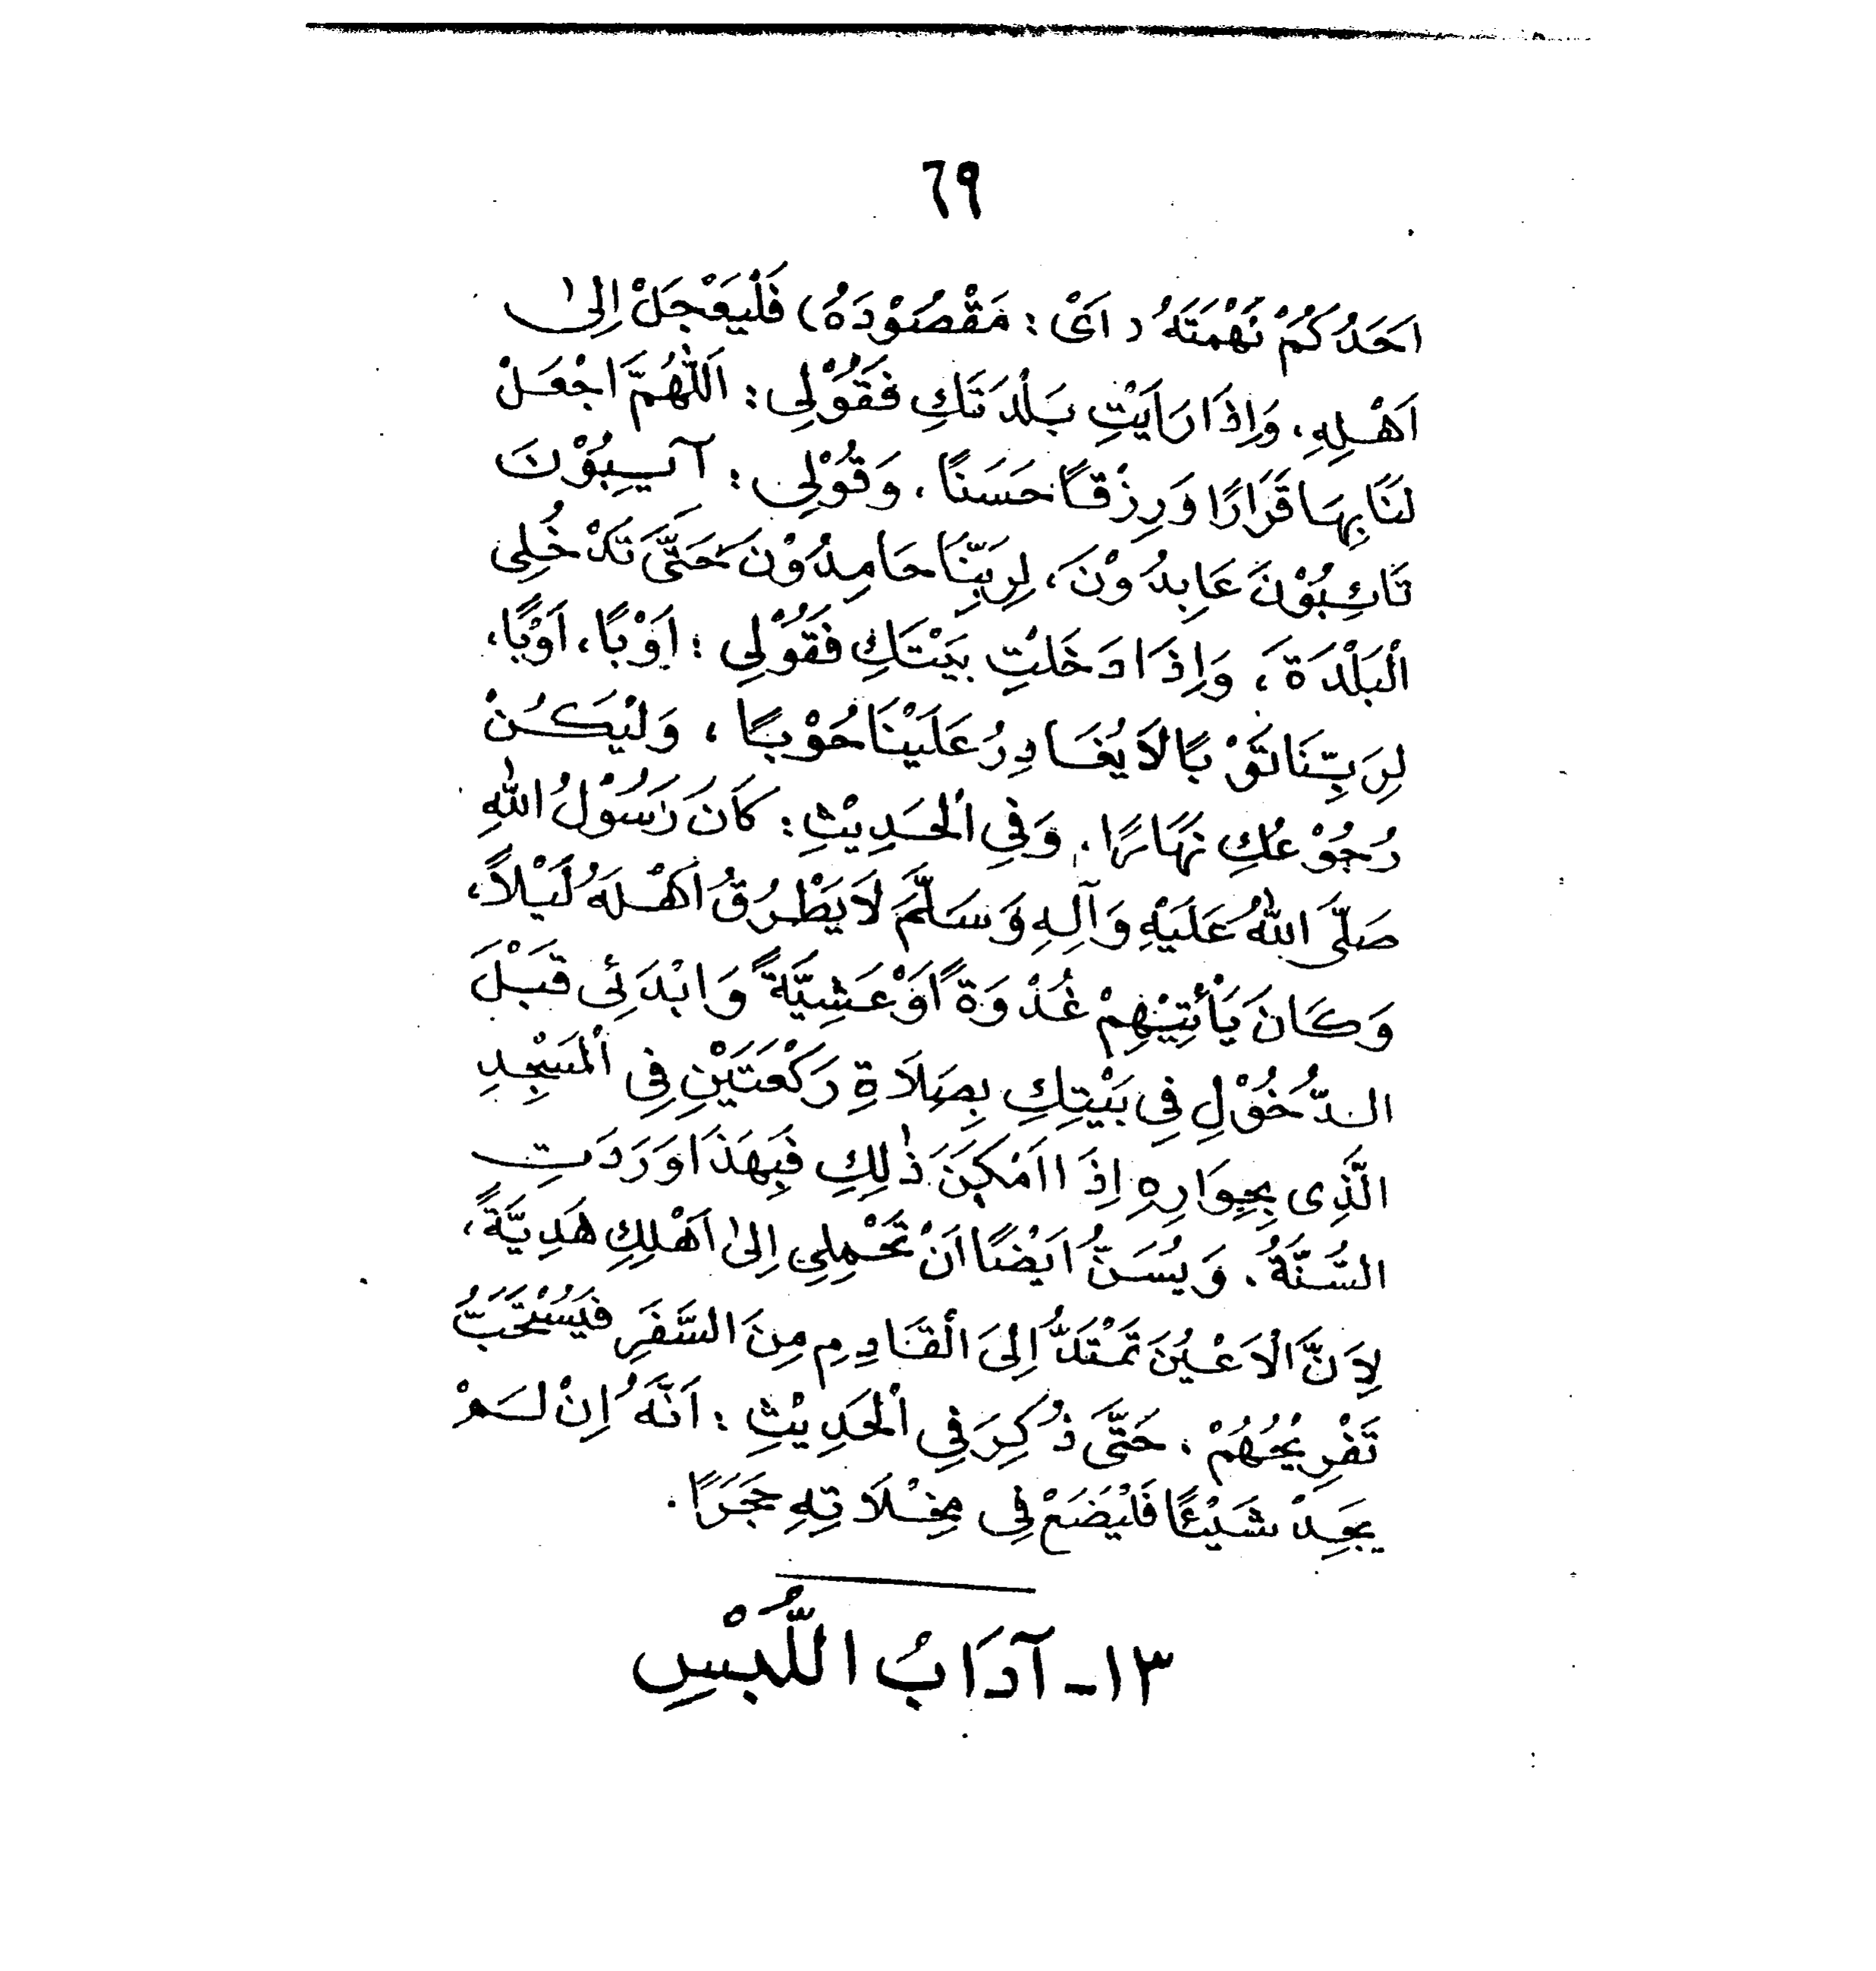 ٦٩
اَحَدُكُمْ نَهْمَتَهُ (اَىْ : مَقْصُوْدَهُ) فَلْيَعْجَلْ اِلىٰ
اَهْلِهِ، وَاِذَا رَاَيْتِ بَلْدَتَكِ فَقُوْلِى : اَللّٰهُمَّ اجْعَلْ
لَنَا بِهَا قَرَارًا وَرِزْقًا حَسَنًا، وَقُوْلِى : آيِبُوْنَ
تَائِبُوْنَ عَابِدُوْنَ، لِرَبِّنَا حَامِدُوْنَ حَتَّى تَدْخُلِى
الْبَلْدَةَ، وَاِذَا دَخَلْتِ بَيْتَكِ فَقُوْلِى : اَوْبًا، اَوْبًا،
لِرَبِّنَا تَوْبًا لَا يُغَادِرُ عَلَيْنَا حُوْبًا، وَلْيَكُنْ
رُجُوْعُكِ نَهَارًا، وَفِى الْحَدِيْثِ : كَانَ رَسُوْلُ اللّٰهِ
صَلَّى اللّٰهُ عَلَيْهِ وَآلِهِ وَسَلَّمَ لَا يَطْرُقُ اَهْلَهُ لَيْلًا،
وَكَانَ يَأْتِيْهِمْ غُدْوَةً اَوْ عَشِيَّةً وَابْدَئِى قَبْلَ
الدُّخُوْلِ فِى بَيْتِكِ بِصَلَاةِ رَكْعَتَيْنِ فِى الْمَسْجِدِ
الَّذِى بِجِوَارِهِ اِذَا اَمْكَنَ ذٰلِكِ فَبِهَذَا وَرَدَتِ
السُّنَّةُ. وَيُسَنُّ اَيْضًا اَنْ تَحْمِلِى اِلىٰ اَهْلِكِ هَدِيَّةً،
لِاَنَّ الْاَعْيُنَ تَمْتَدُّ اِلَى الْقَادِمِ مِنَ السَّفَرِ فَيُسْتَحَبُّ
تَفْرِيْحُهُمْ. حَتَّى ذُكِرَ فِى الْحَدِيْثِ : اَنَّهُ اِنْ لَمْ
يَجِدْ شَيْئًا فَلْيَضَعْ فِى مِخْلَاتِهِ حَجَرًا.
١٣- آدَابُ اللُّبْسِ